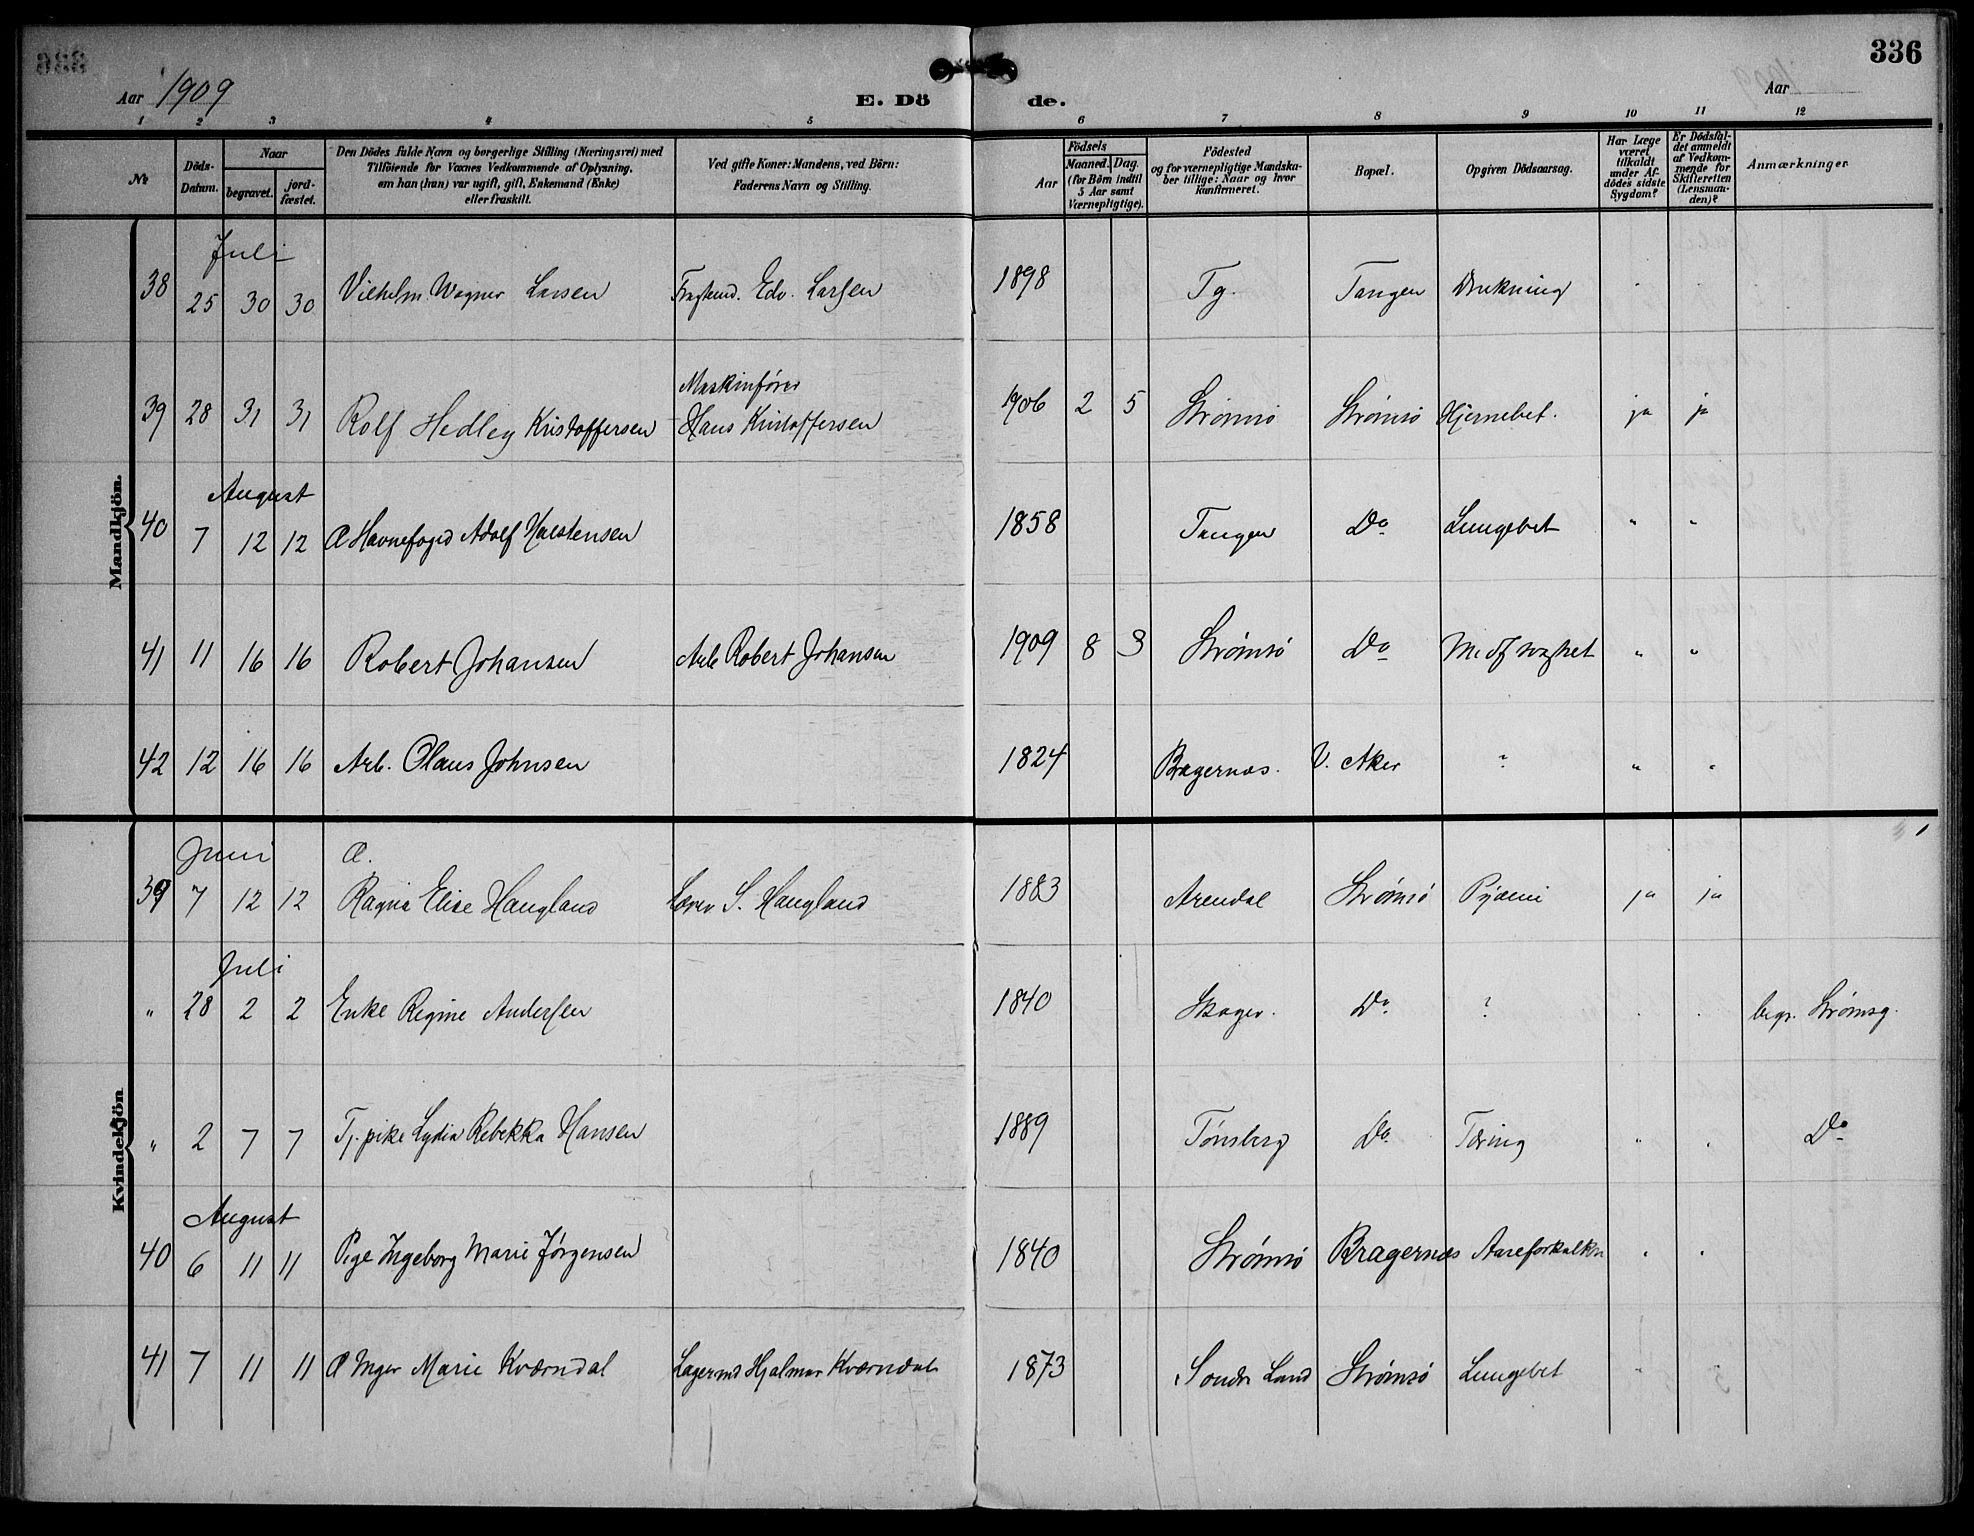 336
Aar 1909
E. Döde.
Aar
1 2 3 4 5 6 7 8 9 10 11 12
№
Döds-Datum.
Naar
begravet.
jord-fæstet.
Den Dödes fulde Navn og borgerlige Stilling (Næringsvei) med
Tilföiende for Voxnes Vedkommende af Oplysning,
om han (hun) var ugift, gift, Enkemand (Enke)
eller fraskilt.
Ved gifte Koner: Mandens, ved Börn:
Faderens Navn og Stilling.
Aar
Födsels
Maaned. Dag.
(for Börn indtil
5 Aar samt
Værnepligtige).
Födested
og for værnepligtige Mandska-
ber tillige: Naar og hvor
konfirmeret.
Bopæl.
Opgiven Dödsaarsag.
Har Læge
været
tilkaldt
under Af-
dödes sidste
Sygdom?
Er Dödsfal-
det anmeldt
af Vedkom-
mende for
Skifteretten
(Lensman-
den)?
Anmærkninger
Mandkjön.
Juli
38 25 30 30 Vilhelm Wagner Larsen Edv. Larsen 1898 Tg. Tangen Drukning
Maskinfører
39 28 31 31 Rolf Hedley Kristoffersen Hans Kristoffersen 1906 2 5 Strømsø Strømsø Hjernebet. ja ja
August
40 7 12 12 Havnefoged Adolf Halstensen 1858 Tangen Do Lungebet " "
41 11 16 16 Robert Johansen Arb Robert Johansen 1909 8 3 Strømsø Do Medf svaghet " "
42 12 16 16 Arb. Olaus Johnsen 1824 Bragernæs. V. Aker ? " "
Kvindekjön
Juni
39 7 12 12 Ragna Elise Haugland Lærer S. Haugland 1883 Arendal Strømsø Pyæmi ja ja
Juli
" 28 2 2 Enke Regine Andersen 1840 Skoger. Do ? begr. Strømsg.
" 2 7 7 Tj. pike Lydia Rebekka Hansen 1889 Tønsberg Do Tæring " " Do
August
40 6 11 11 Pige Ingeborg Marie Jørgensen 1840 Strømsø Bragernæs Aareforkalkn
41 7 11 11 Inger Marie Kværndal Lagermd Hjalmar Kværndal 1873 Søndr Land Strømsø Lungebet